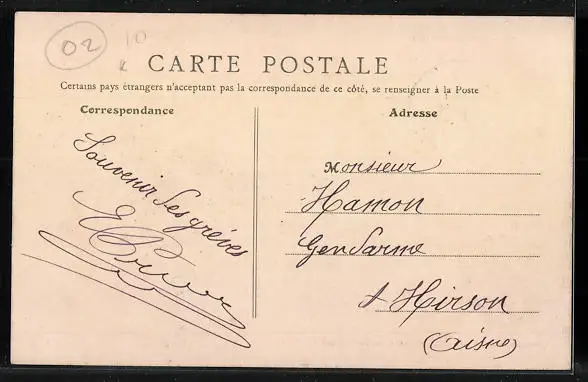 02
10
CARTE POSTALE
Certains pays étrangers n'acceptant pas la correspondance de ce côté, se renseigner à la Poste
Correspondance
Adresse
Souvenir des grèves
Monsieur
Hamon
Gendarme
à Hirson
(Aisne)